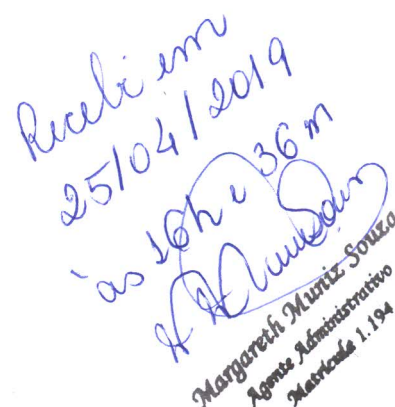 Recebi em
25/04/2019
às 16h e 36m
Margareth Muniz Souza
Agente Administrativo
Matrícula 1.194